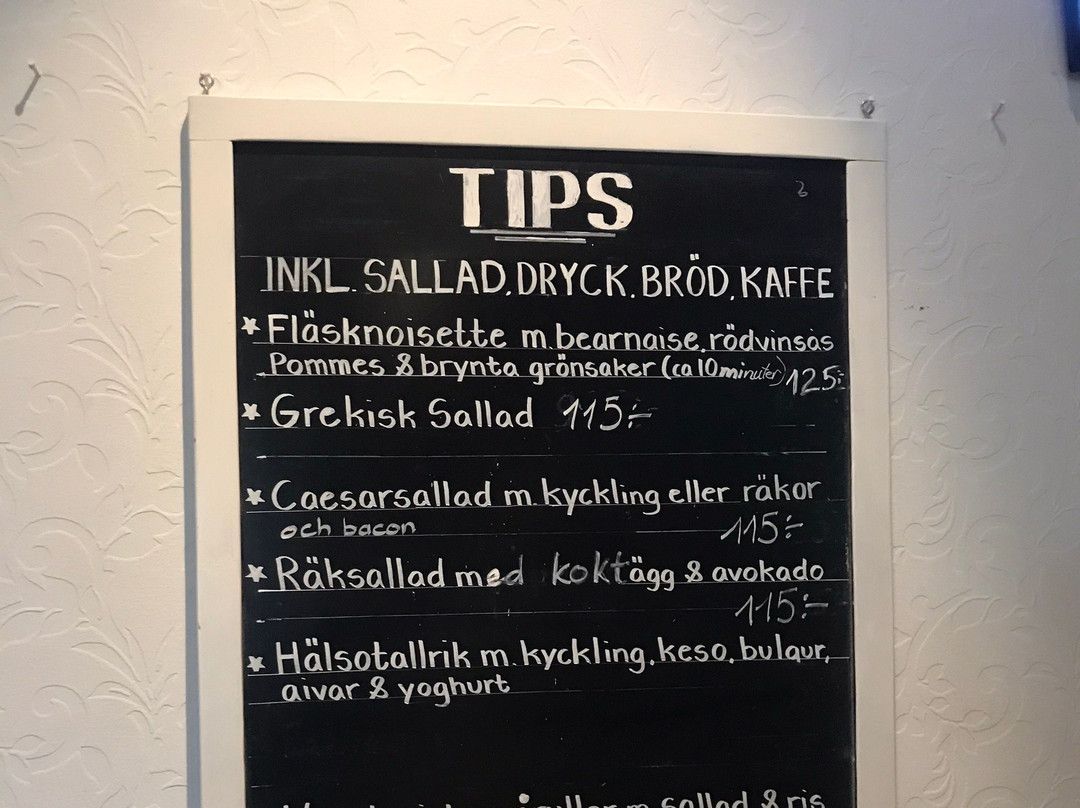 TIPS
INKL. SALLAD, DRYCK, BRÖD, KAFFE
* Fläsknoisette m. bearnaise, rödvinsås
Pommes & brynta grönsaker (ca 10 minuter) 125:-
* Grekisk Sallad 115:-
* Caesarsallad m. kyckling eller räkor
och bacon 115:-
* Räksallad med kokt ägg & avokado
115:-
* Hälsotallrik m. kyckling, keso, bulgur,
aivar & yoghurt
m sallad & ris